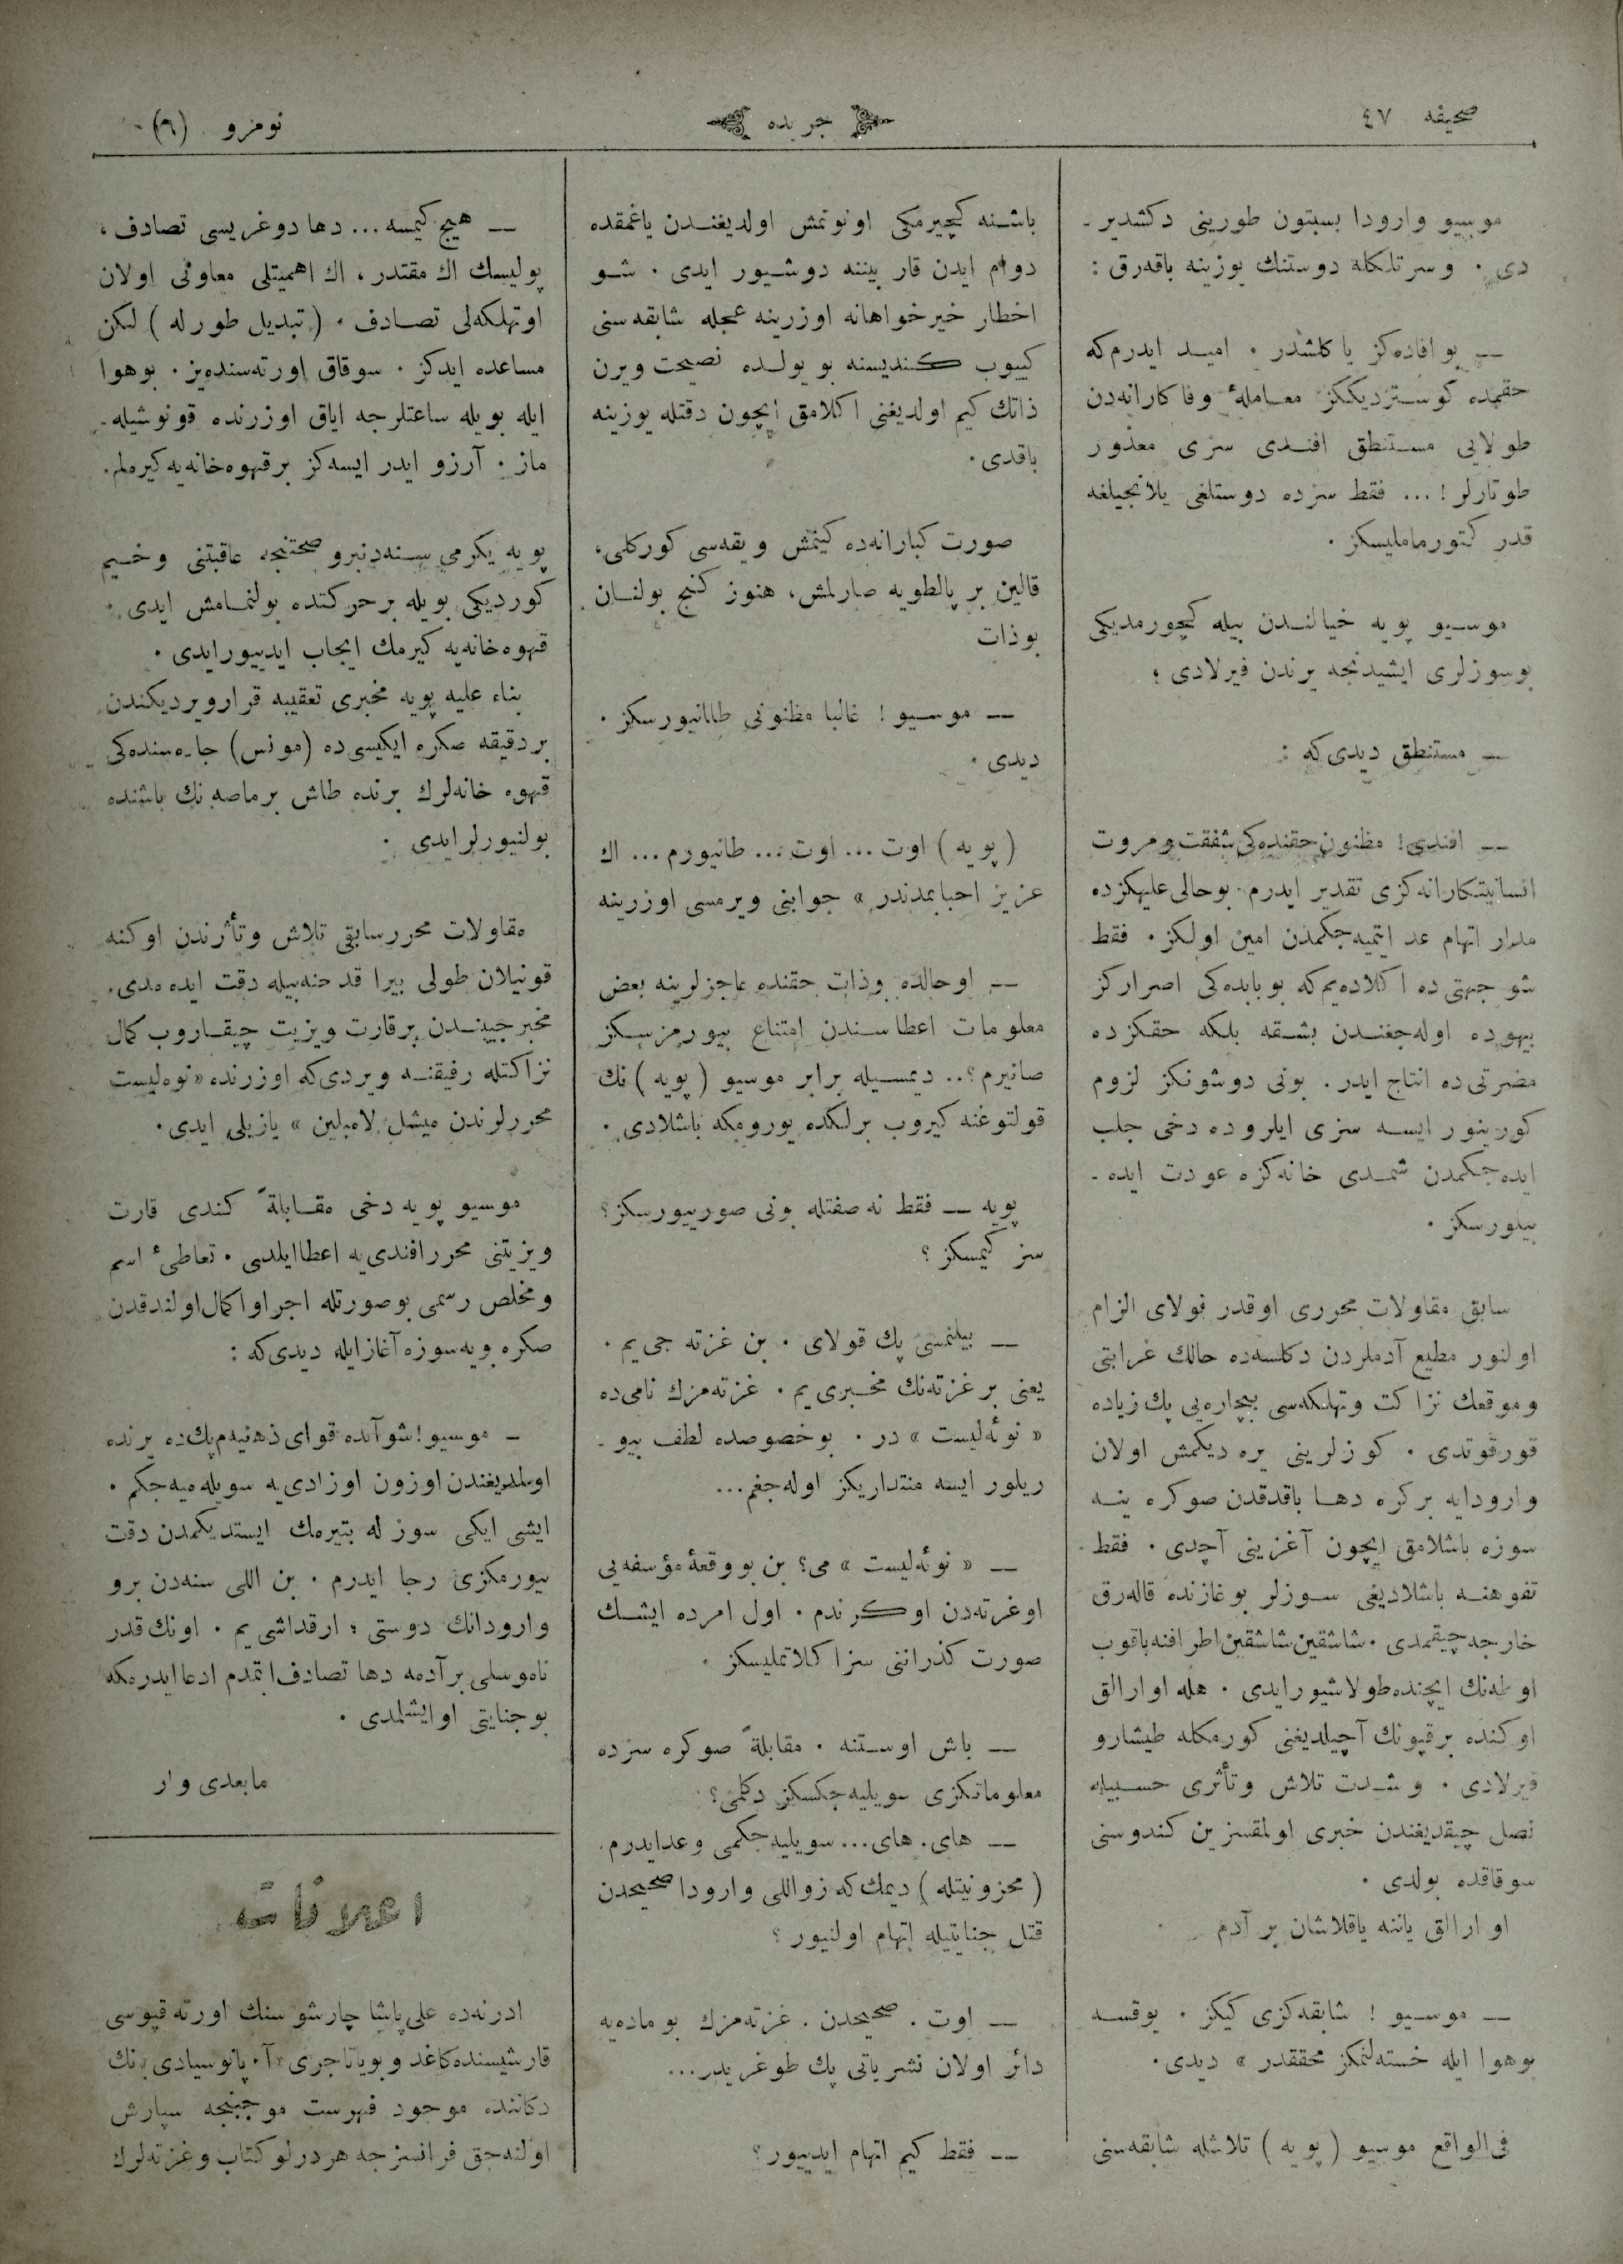 صحیفه ٤٧
جریده
نومرو (٦)
موسیو وارودا بسبتون طورینی دكشدیر ـ
دی ۰ وسرتلكله دوستنك یوزینه باقه‌رق :
— بو افاده‌كز یا كلشدر ۰ امید ایدرم‌كه
حقمده كوستردیككز معاملۀ وفا كارانه‌دن
طولایی مستنطق افندی سزی معذور
طوتارلر ! ... فقط سزده دوستلغی یلانجیلغه
قدر كتورماملیسكز ۰
موسیو پویه خیالندن بیله كچورمدیكی
بوسوزلری ایشیدنجه یرندن فیرلادی ؛
— مستنطق دیدی‌كه :
— افندی ! مظنون حقنده‌كی شفقت ومروت
انسانیتكارانه‌كزی تقدیر ایدرم ۰ بوحالی علیهكزده
مدار اتهام عد ایتمیه‌جكمدن امین اولكز ۰ فقط
شو جهتی ده ا كلاده‌یم‌كه بو بابده‌كی اصراركز
بیهوده اوله‌جغندن بشقه بلكه حقكزده
مضرتی ده انتاج ایدر ۰ بونی دوشونكز لزوم
كورینور ایسه سزی ایلروده دخی جلب
ایده‌جكمدن شمدی خانه‌كزه عودت ایده ـ
بیلورسكز ۰
سابق مقاولات محرری اوقدر قولای الزام
اولنور مطیع آدملردن دكلسه‌ده حالك غرابتی
وموقعك نزاكت وتهلكه‌سی بیچاره‌یی پك زیاده
قورقوتدی ۰ كوزلرینی یره دیكمش اولان
وارودایه بركره دها باقدقدن صوكره ینه
سوزه باشلامق ایچون آغزینی آچدی ۰ فقط
تفوهنه باشلادیغی سوزلر بوغازنده قاله‌رق
خارجه چیقمدی ۰ شاشقین شاشقین اطرافنه باقوب
اوطه‌نك ایچنده طولاشیورایدی ۰ هله اوارالق
اوكنده برقپونك آچیلدیغنی كورمكله طیشارو
فیرلادی ۰ وشدت تلاش وتأثری حسبیله
نصل چیقدیغندن خبری اولمقسزین كندوسنی
سوقاقده بولدی ۰
اوارالق یاننه یاقلاشان بر آدم
— موسیو ! شابقه‌كزی كیكز ۰ یوقسه
بوهوا ایله خسته‌لنمكز محققدر » دیدی ۰
فی‌الواقع موسیو ( پویه ) تلاشله شابقه‌سنی
باشنه كچیرمكی اونوتمش اولدیغندن یاغمقده
دوام ایدن قار بیننه دوشیور ایدی ۰ شو
اخطار خیرخواهانه اوزرینه عجله شابقه‌سنی
كییوب كندیسنه بو یولده نصیحت ویرن
ذاتك كیم اولدیغنی ا كلامق ایچون دقتله یوزینه
باقدی ۰
صورت كبارانه‌ده كینمش ویقه‌سی كوركلی،
قالین بر پالطویه صارلمش، هنوز كنج بولنان
بوذات
— موسیو ! غالبا مظنونی طانیورسكز ۰
دیدی ۰
( پویه ) اوت ... اوت ... طانیورم ... اك
عزیز احبابمدندر » جوابنی ویرمسی اوزرینه
— اوحالده بوذات حقنده عاجزلرینه بعض
معلومات اعطاسندن امتناع بیورمزسكز
صانیرم ؟.. دیمسیله برابر موسیو ( پویه ) نك
قولتوغنه كیروب برلكده یورومكه باشلادی ۰
پویه — فقط نه صفتله بونی صورییورسكز ؟
سز كیمسكز ؟
— بیلنمسی پك قولای ۰ بن غزته جی‌یم ۰
یعنی بر غزته‌نك مخبری‌یم ۰ غزته‌مزك نامی ده
« نوئه‌لیست » در ۰ بوخصوصده لطف بیو ـ
ریلور ایسه منتداریكز اوله‌جغم ...
— « نوئه‌لیست » می ؟ بن بووقعۀ مؤسفه‌یی
اوغزته‌دن اوكرندم ۰ اول امرده ایشك
صورت كذراننی سزا كلاتملیسكز ۰
— باش اوستنه ۰ مقابلةً صوكره سزده
معلوماتكزی سویلیه‌جكسكز دكلمی ؟
— های ۰ های ... سویلیه‌جكمی وعدایدرم ۰
( محزونیتله ) دیمك‌كه زواللی وارودا صحیحدن
قتل جنایتیله اتهام اولنیور ؟
— اوت ۰ صحیحدن ۰ غزته‌مزك بو ماده‌یه
دائر اولان نشریاتی پك طوغریدر ...
— فقط كیم اتهام ایدییور ؟
— هیچ كیمسه ... دها دوغریسی تصادف ،
پولیسك اك مقتدر ، اك اهمیتلی معاونی اولان
اوتهلكه‌لی تصادف ۰ ( تبدیل طورله ) لكن
مساعده ایدكز ۰ سوقاق اورته‌سنده‌یز ۰ بوهوا
ایله بویله ساعتلرجه ایاق اوزرنده قونوشیله ـ
ماز ۰ آرزو ایدر ایسه‌كز برقهوه‌خانه‌یه كیره‌لم ۰
پویه یكرمی سنه‌دنبرو صحتنجه عاقبتنی وخیم
كوردیكی بویله برحركتده بولنمامش ایدی ۰
قهوه‌خانه‌یه كیرمك ایجاب ایدییورایدی ۰
بناء علیه پویه مخبری تعقیبه قرارویردیكندن
بردقیقه صكره ایكیسی ده (مونس) جاده‌سنده‌كی
قهوه خانه‌لرك برنده طاش برماصه نك باشنده
بولنیورلرایدی ۰
مقاولات محررسابقی تلاش وتأثرندن اوكنه
قونیلان طولی بیرا قدحنه‌بیله دقت ایده‌مدی ۰
مخبرجیبندن برقارت ویزیت چیقاروب كمال
نزاكتله رفیقنه ویردی‌كه اوزرنده « نوه‌لیست
محررلرندن میشل لامبلین » یازیلی ایدی ۰
موسیو پویه دخی مقابلةً كندی قارت
ویزیتنی محررافندی‌یه اعطاایلدی ۰ تعاطیٔ اسم
ومخلص رسمی بوصورتله اجراواكمال اولندقدن
صكره پویه سوزه آغازایله دیدی‌كه :
— موسیو ! شوآنده قوای ذهنیه‌م پك ده یرنده
اولمدیغندن اوزون اوزادی‌یه سویله‌میه‌جكم ۰
ایشی ایكی سوز له بتیرمك ایستدیكمدن دقت
بیورمكزی رجا ایدرم ۰ بن اللی سنه‌دن برو
وارودانك دوستی ؛ ارقداشی‌یم ۰ اونك قدر
ناموسلی برآدمه دها تصادف ایتمدم ادعاایدرمكه
بوجنایتی اوایشلمدی ۰
مابعدی وار
اعلانات
ادرنه‌ده علی پاشا چارشوسنك اورته قپوسی
قارشیسنده كاغد وبویاتاجری « آ ۰ پانوسیادی » نك
دكاننده موجود فهرست موجبنجه سپارش
اولنه‌جق فرانسزجه هردرلو كتاب وغزته‌لرك